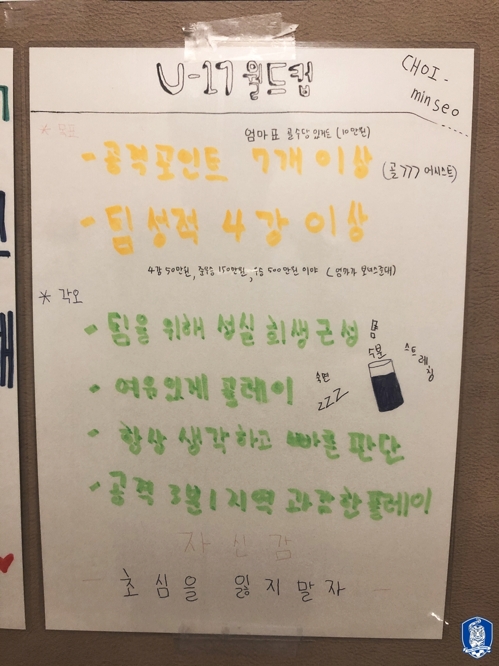 U-17 월드컵
CHOI-
minseo
* 목표
엄마표 골 수당 있거든 (10만원)
- 공격포인트 7개 이상
(골 777 어시스트)
- 팀 성적 4강 이상
4강 50만원, 준우승 150만원, 우승 500만원 이야 (엄마가 보너스준대)
* 각오
- 팀을 위해 성실 희생 근성
몸
수분
스트레칭
- 여유있게 플레이
숙면
zzz
- 항상 생각하고 빠른 판단
- 공격 3분1지역 과감한 플레이
자신감
- 초심을 잃지말자 -